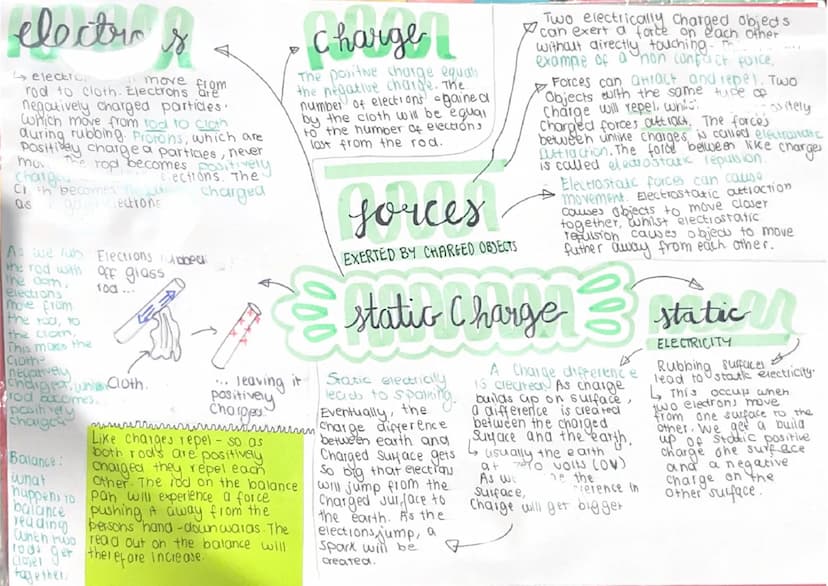 electrons
↳ electrons move from
rod to cloth. Electrons are
negatively charged particles.
which move from rod to cloth
during rubbing. Protons, which are
positively charge a particles, never
The rod becomes positively
The
becomes charged
as
charge
The positive charge equals
the negative charge. The
number of electrons gained
by the cloth will be equal
to the number of electrons
lost from the rod.
Two electrically charged objects
can exert a force on each other
without directly touching -
example of a non contact force.
Forces can attract and repel. Two
Objects with the same type of
Charge will repel, whilst
Charged forces attract. The forces
between unlike charges is called electrostatic
attraction. The force between like charges
is called electrostatic repulsion.
Electrostatic forces can cause
movement. Electrostatic attraction
causes objects to move closer
together, whilst electrostatic
repulsion causes objects to move
futher away from each other.
forces
EXERTED BY CHARGED OBJECTS
Static Charge
static
ELECTRICITY
Rubbing surfaces
lead to static electricity.
↳ This occurs when
two electrons move
from one surface to the
other. We get a build
up of static positive
charge one surface
and a negative
charge on the
other surface.
As we rub
the rod with
the cloth,
electrons
move from
the rod, to
the cloth.
This makes the
cloth
negatively
charged,
rod becomes
positively
charged
Electrons rubbed
off glass
rod...
Cloth.
... leaving it
positively
Charged
Balance:
what
happens to
balance
reading
when two
rods get
closer
together.
Like charges repel - so as
both rods are positively
charged they repel each
other. The rod on the balance
pan will experience a force
pushing it away from the
persons hand - downwards. The
read out on the balance will
therefore increase.
Static electricity
leads to sparking.
Eventually, the
charge difference
between earth and
Charged surface gets
so big that electrons
will jump from the
charged surface to
the earth. As the
electrons jump, a
spark will be
created.
A Charge difference
is created. As charge
builds up on surface,
a difference is created
between the charged
surface and the earth.
↳ usually the earth
at zero volts (0V)
As the
surface, difference in
charge will get bigger